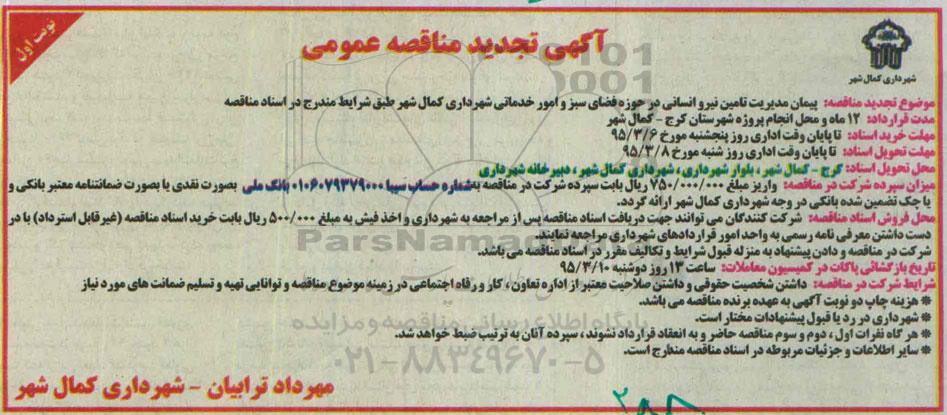 نوبت اول
آگهی تجدید مناقصه عمومی
شهرداری کمال شهر
موضوع تجدید مناقصه: پیمان مدیریت تامین نیرو انسانی در حوزه فضای سبز و امور خدماتی شهرداری کمال شهر طبق شرایط مندرج در اسناد مناقصه
مدت قرارداد: ۱۲ ماه و محل انجام پروژه شهرستان کرج - کمال شهر
مهلت خرید اسناد: تا پایان وقت اداری روز پنجشنبه مورخ ۹۵/۳/۶
مهلت تحویل اسناد: تا پایان وقت اداری روز شنبه مورخ ۹۵/۳/۸
محل تحویل اسناد: کرج - کمال شهر، بلوار شهرداری، شهرداری کمال شهر، دبیرخانه شهرداری
میزان سپرده شرکت در مناقصه: واریز مبلغ ۷۵۰/۰۰۰/۰۰۰ ریال بابت سپرده شرکت در مناقصه به شماره حساب سیبا ۰۱۰۶۰۷۹۳۷۹۰۰۰ بانک ملی بصورت نقدی یا بصورت ضمانتنامه معتبر بانکی و
یا چک تضمین شده بانکی در وجه شهرداری کمال شهر ارائه گردد.
محل فروش اسناد مناقصه: شرکت کنندگان می توانند جهت دریافت اسناد مناقصه پس از مراجعه به شهرداری و اخذ فیش به مبلغ ۵۰۰/۰۰۰ ریال بابت خرید اسناد مناقصه (غیرقابل استرداد) با در
دست داشتن معرفی نامه رسمی به واحد امور قراردادهای شهرداری مراجعه نمایند.
شرکت در مناقصه و دادن پیشنهاد به منزله قبول شرایط و تکالیف مقرر در اسناد مناقصه می باشد.
تاریخ بازگشائی پاکات در کمیسیون معاملات: ساعت ۱۳ روز دوشنبه ۹۵/۳/۱۰
شرایط شرکت در مناقصه: داشتن شخصیت حقوقی و داشتن صلاحیت معتبر از اداره تعاون، کار و رفاه اجتماعی در زمینه موضوع مناقصه و توانایی تهیه و تسلیم ضمانت های مورد نیاز
* هزینه چاپ دو نوبت آگهی به عهده برنده مناقصه می باشد.
* شهرداری در رد یا قبول پیشنهادات مختار است.
* هر گاه نفرات اول، دوم و سوم مناقصه حاضر و به انعقاد قرارداد نشوند، سپرده آنان به ترتیب ضبط خواهد شد.
* سایر اطلاعات و جزئیات مربوطه در اسناد مناقصه مندرج است.
مهرداد ترابیان - شهرداری کمال شهر
ParsNamadData
پایگاه اطلاع رسانی مناقصه و مزایده
۰۲۱-۸۸۳۴۹۶۷۰-۵